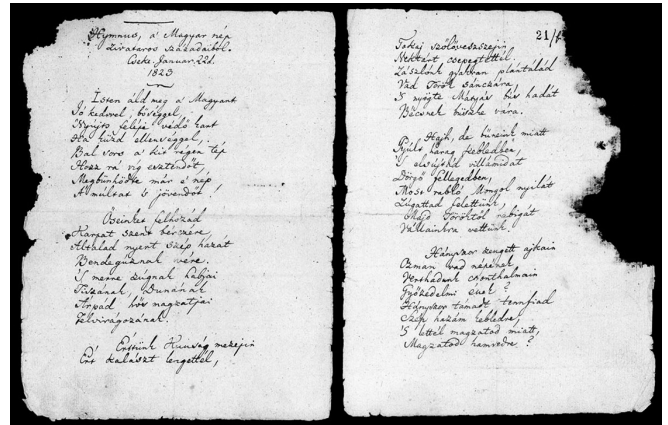 Hymnus, a' Magyar nép
zivataros századaiból.
Cseke. Januar. 22d.
1823
Isten áldd meg a' Magyart
Jó kedvvel, bőséggel,
Nyújts feléje védő kart
Ha küzd ellenséggel;
Bal sors a' kit régen tép
Hozz rá víg esztendőt,
Megbűnhődte már e' nép
A' múltat 's jövendőt!
Őseinket felhozád
Kárpát szent bérczére,
Általad nyert szép hazát
Bendegúznak vére.
'S merre zúgnak habjai
Tiszának, Dunának
Árpád hős magzatjai
Felvirágozának.
Értünk Kunság mezején
Ért kalászt lengettél,
21/1
Tokaj szőlővesszején
Nektárt csepegtettél.
Zászlónk gyakran plántálád
Vad Török sánczára,
'S nyögte Mátyás bús hadát
Bécsnek büszke vára.
Hajh, de bűneink miatt
Gyúlt harag kebledben,
'S elsújtád villámidat
Dörgő fellegedben,
Most rabló Mongol nyilát
Zúgattad felettünk,
Majd Töröktől rabigát
Vállainkra vettünk.
Hányszor zengett ajkain
Ozman vad népének
Vert hadunk csonthalmain
Győzedelmi ének?
Hányszor támadt tennfiad
Szép hazám kebledre,
'S lettél magzatod miatt,
Magzatod hamvedre?